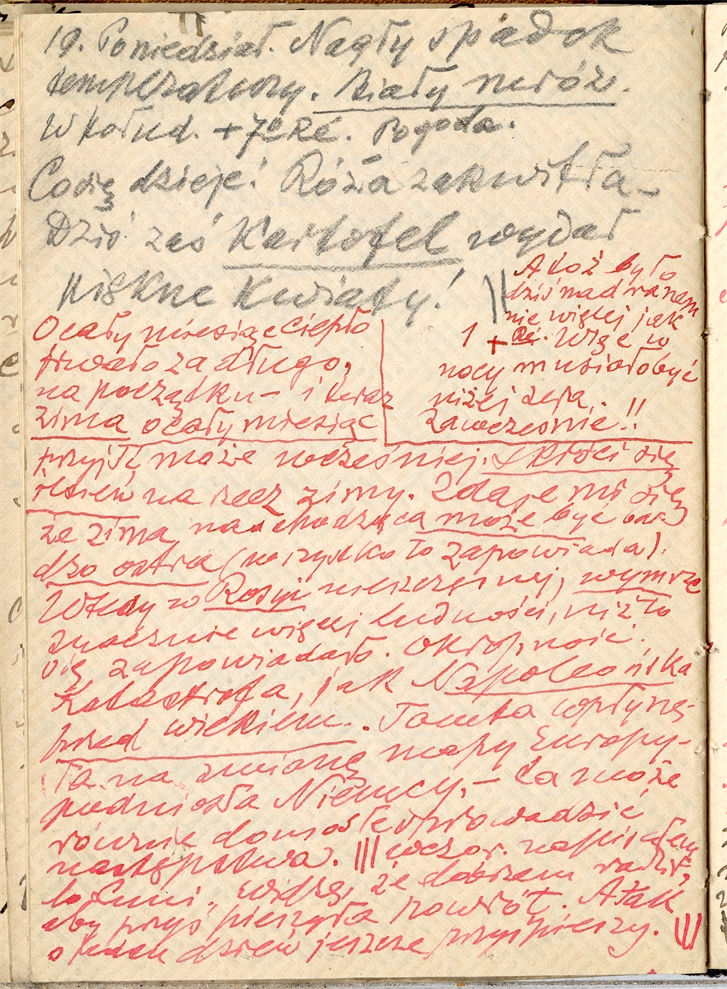 19. Poniedział. Nagły spadek
temperatury. Biały mróz.
W połud. +7° Ré. Pogoda.
Co się dzieje! Róża zakwitła –
Dziś zaś Kartofel wydał
piękne Kwiaty!
A toż było
dziś nad ranem
nie więcej jak
1 + Ré. Więc w
nocy musiało być
niżej zera.
Zawcześnie!!
O cały miesiąc ciepło
trwało za długo,
na początku – i teraz
zima o cały miesiąc
przyjść może wcześniej. Skróci się
jesień na rzecz zimy. Zdaje mi się
że zima nadchodząca może być bar
dzo ostra (wszystko to zapowiada).
Wtedy w Rosyi nieszczęsnej, wymrze
znacznie więcej ludności, niż to
się zapowiadało. Okropność.
Katastrofa, jak Napoleońska
przed wiekiem. Tamta wpłynę-
ła na zmianę mapy Europy –
podniosła Niemcy, – ta może
równie doniosłe sprowadzić
następstwa. ||| wczor. napisałem
do Luni, widzę, że dobrzem radził,
aby przyspieszyła powrót. A tak
o jeden dzień jeszcze przyspieszy. |||